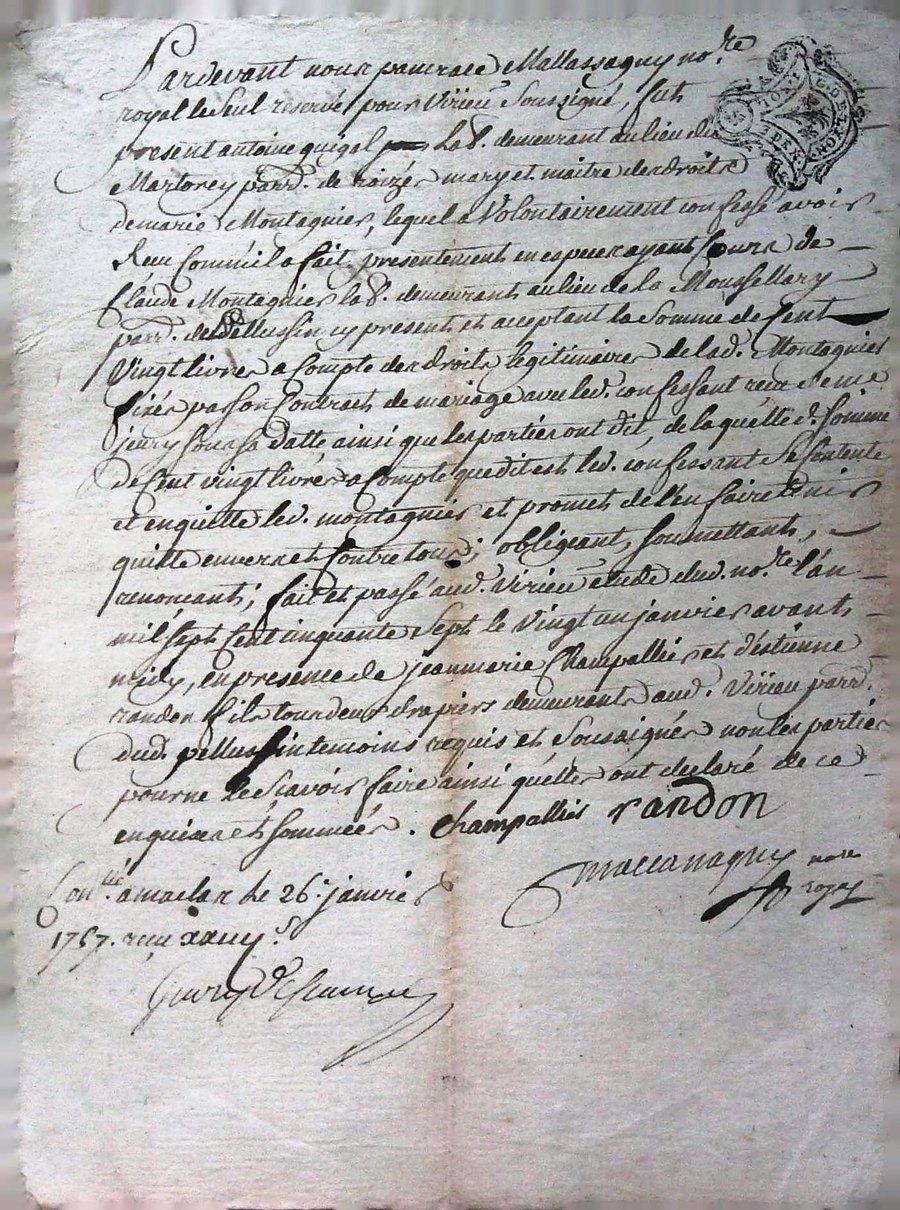 Pardevant nous pancrace Mallassagny no.re
royal le seul reservé pour Virieu Soussigné, fut
present antoine guigal la 8. demeurant au lieu du
Martorey parr. de roizé mary et maitre des droits
de marie Montagnier, lequel a Volontairement confessé avoir
Reçu Comme il a fait presentement en especes ayant Cours de
Claude Montagnier la 8. demeurant au lieu de la Moussellary
parr. de Pellussin cy present et acceptant la Somme de Cent
Vingt livres a Compte des droits legitimaires de lad. Montagnier
fixés par son Contract de mariage avec led. confessant reçu de me
jeury sous sa datte ainsi que les parties ont dit, de laquelle d. Somme
de Cent vingt livres a Compte que dit est led. confessant Se Contente
et en quitte led. montagnier et promet de l'en faire tenir
quitte envers et Contre tous; obligeant, soumettant,
renoncant; fait et passé aud. Virieu etude dud. no.re l'an
mil sept Cent cinquante Sept le Vingt un janvier avant
midy, en presence de jean marie Champallier et d'estienne
randon fils tondeurs drapiers demeurent aud. Virieu parr.
dud. pellussin temoins requis et Soussignés non les parties
pour ne le scavoir faire ainsi qu'elles ont declaré de ce
enquises et sommées. Champallier randon
Con.lé a maclas le 26. janvier
nore
royal
1757. reçu